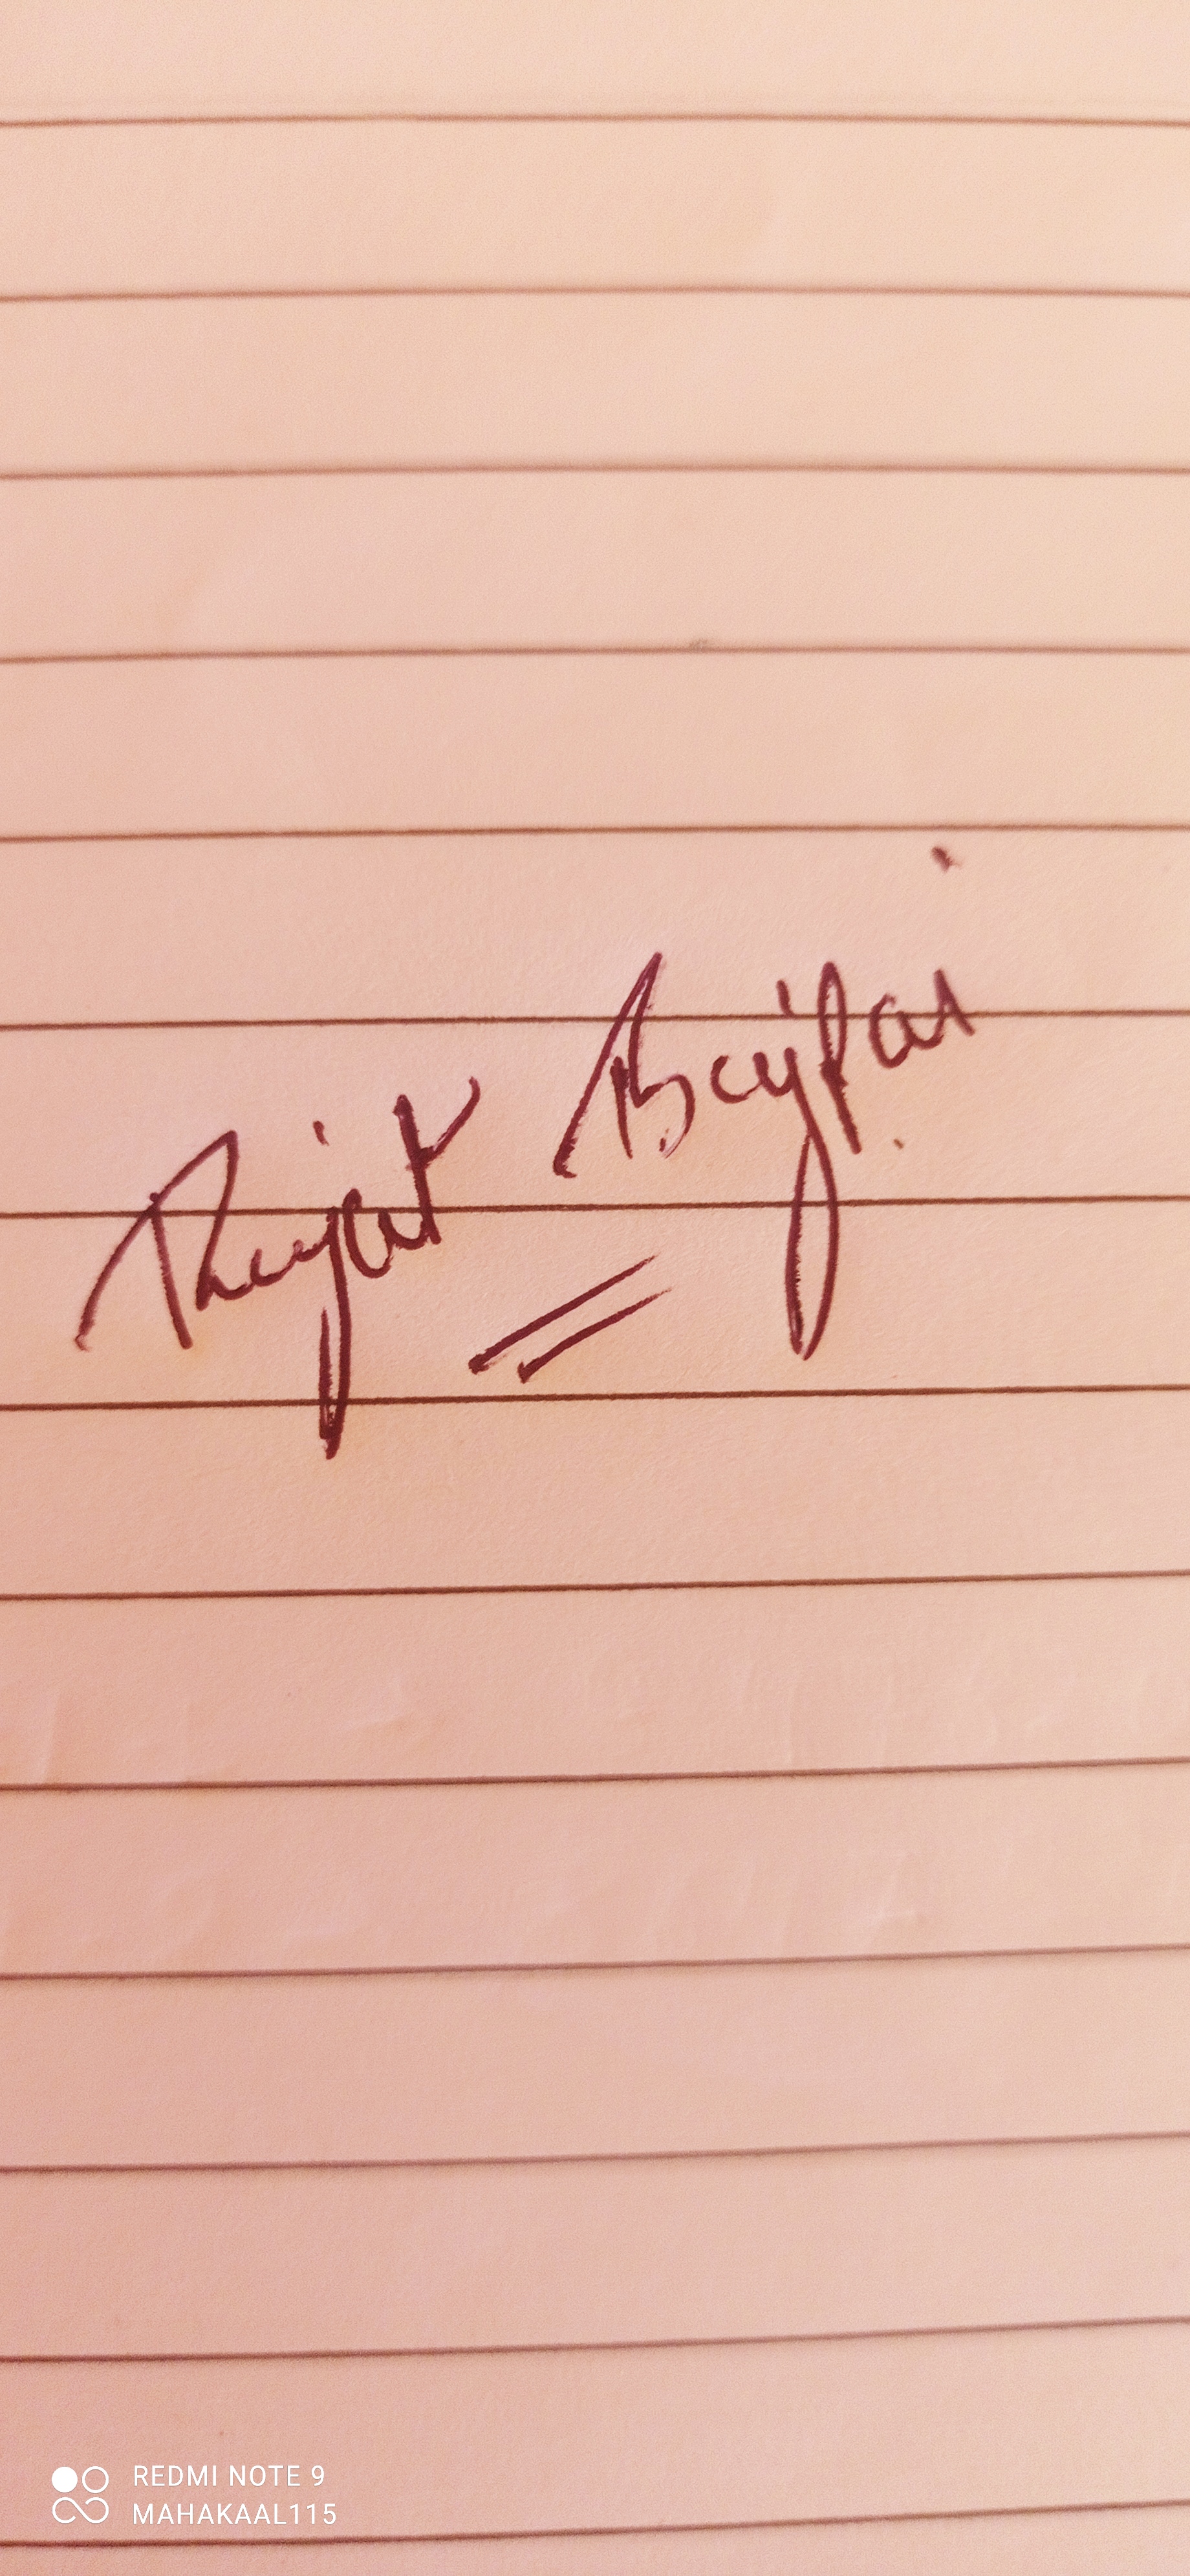 Rajat Bajpai
REDMI NOTE 9
MAHAKAAL115